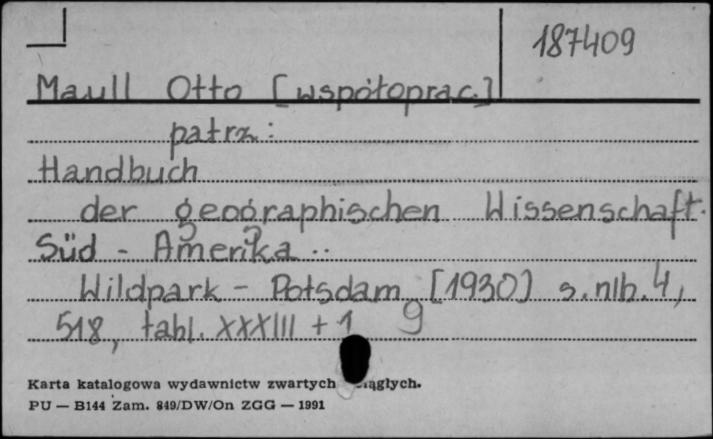 187409
Maull Otto [współoprac.]
patrz:
Handbuch
der geographischen Wissenschaft.
Süd - Amerika..
Wildpark - Potsdam [1930] s. nlb. 4,
518, tabl. XXXIII + 1 9
Karta katalogowa wydawnictw zwartych
PU — B144 Zam. 849/DW/On ZGG — 1991